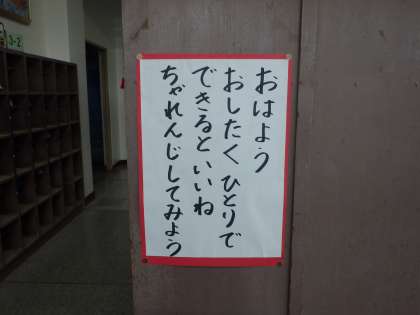 おはよう
おしたくひとりで
できるといいね
ちゃれんじしてみよう